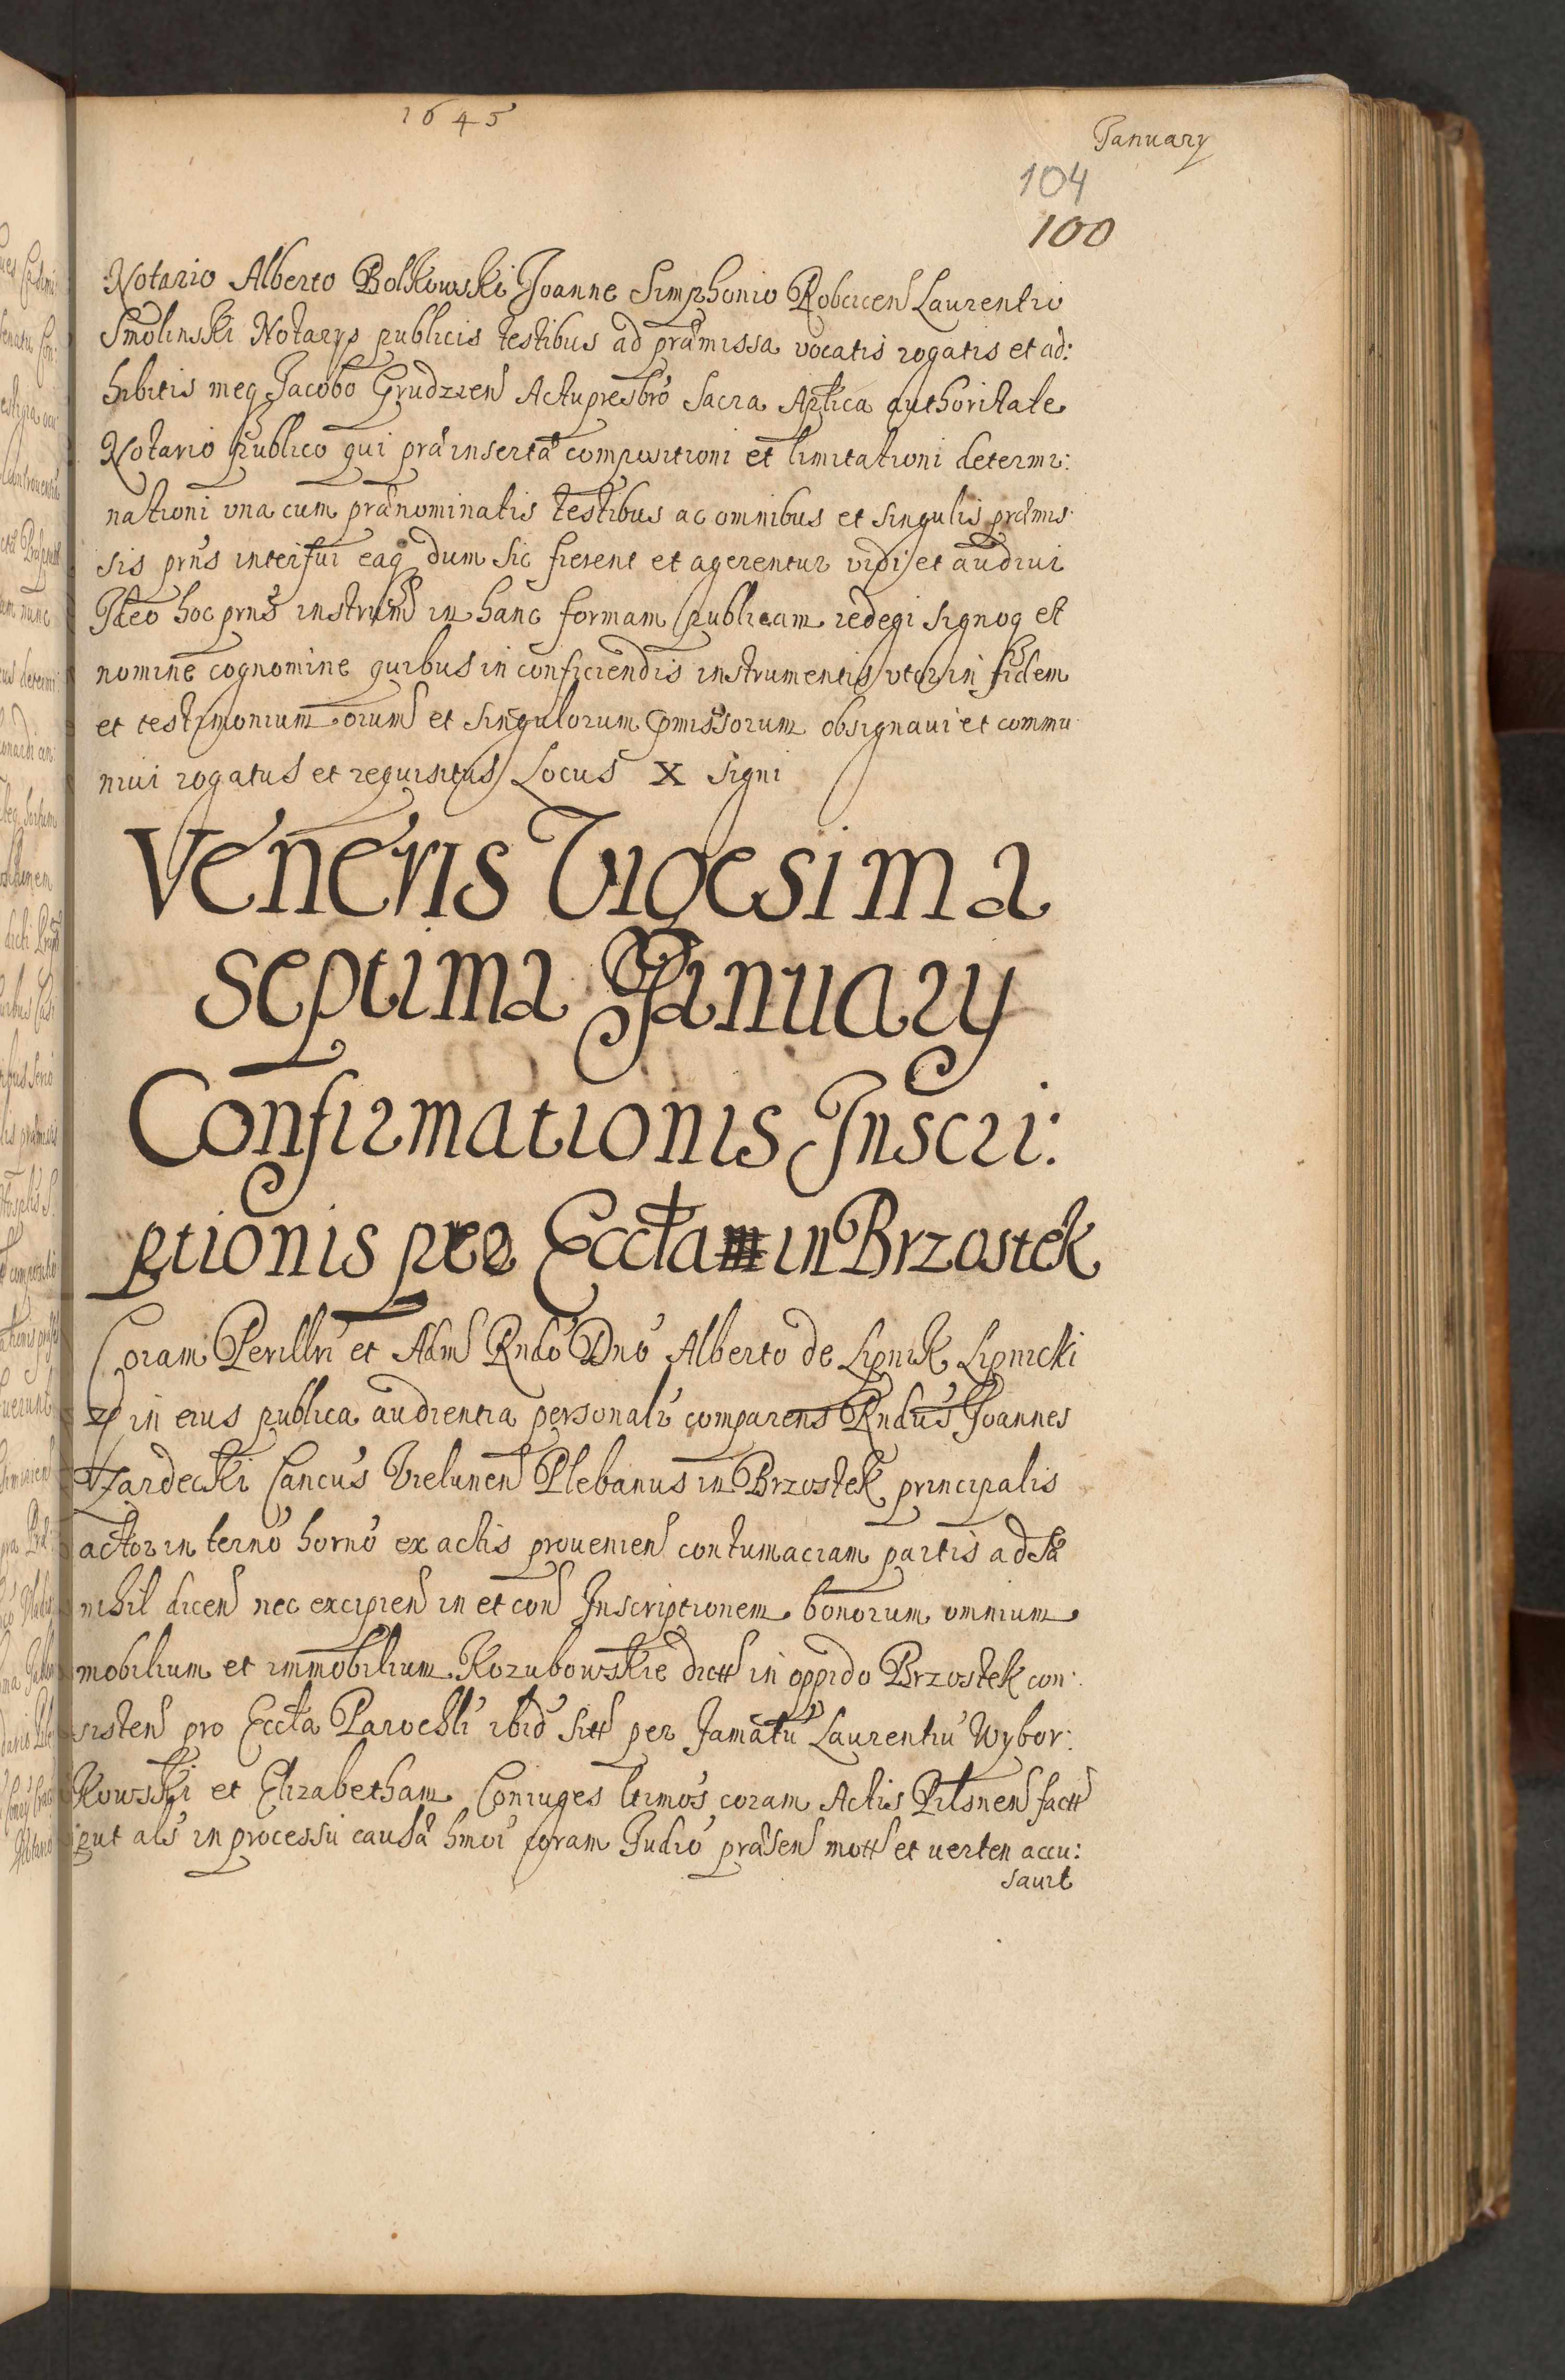 1645
January
104
100
Notario Alberto Bolkowski Joanne Simphonio Robcicen Laurentio
Smolinski Notarys publicis testibus ad præmissa vocatis rogatis et ad:
hibitis meq Jacobo Grudzien Actu presbro Sacra Aptica authoritate
Notario publico qui præinsertæ compositioni et limitationi determi:
nationi una cum prænominatis testibus ac omnibus et singulis præmis:
sis prns interfui eaq dum sic fierent et agerentur vidi et audivi
Ideo hoc prns instrum in hanc formam publicam redegi signoq et
nomine cognomine quibus in conficiendis instrumentis utor in fidem
et testimonium oium et singulorum pmissorum obsignavi et commu
nivi rogatus et requisitus Locus X Signi
Veneris Vigesima
septima January
Confirmationis Inscri:
ptionis pro Eccta in Brzostek
Coram Perillri et Adm Rndo Dno Alberto de Lipnik Lipnicki
in eius publica audientia personalr comparens Rndus Joannes
Zardecki Cancus Vielunen Plebanus in Brzostek principalis
actor in terno horno ex actis provenien contumaciam partis adsæ
nihil dicen nec excipien in et con Inscriptionem bonorum omnium
mobilium et immobilium Kozubowskie dictt in oppido Brzostek con:
sisten pro Eccta Parochli ibid sitt per famatu Laurentiu Wybor:
kowski et Elizabetham Coniuges ltimos coram Actis Pilsnen factt
put als in processu causæ hmoi coram Judio præsen mott et verten accu:
savit